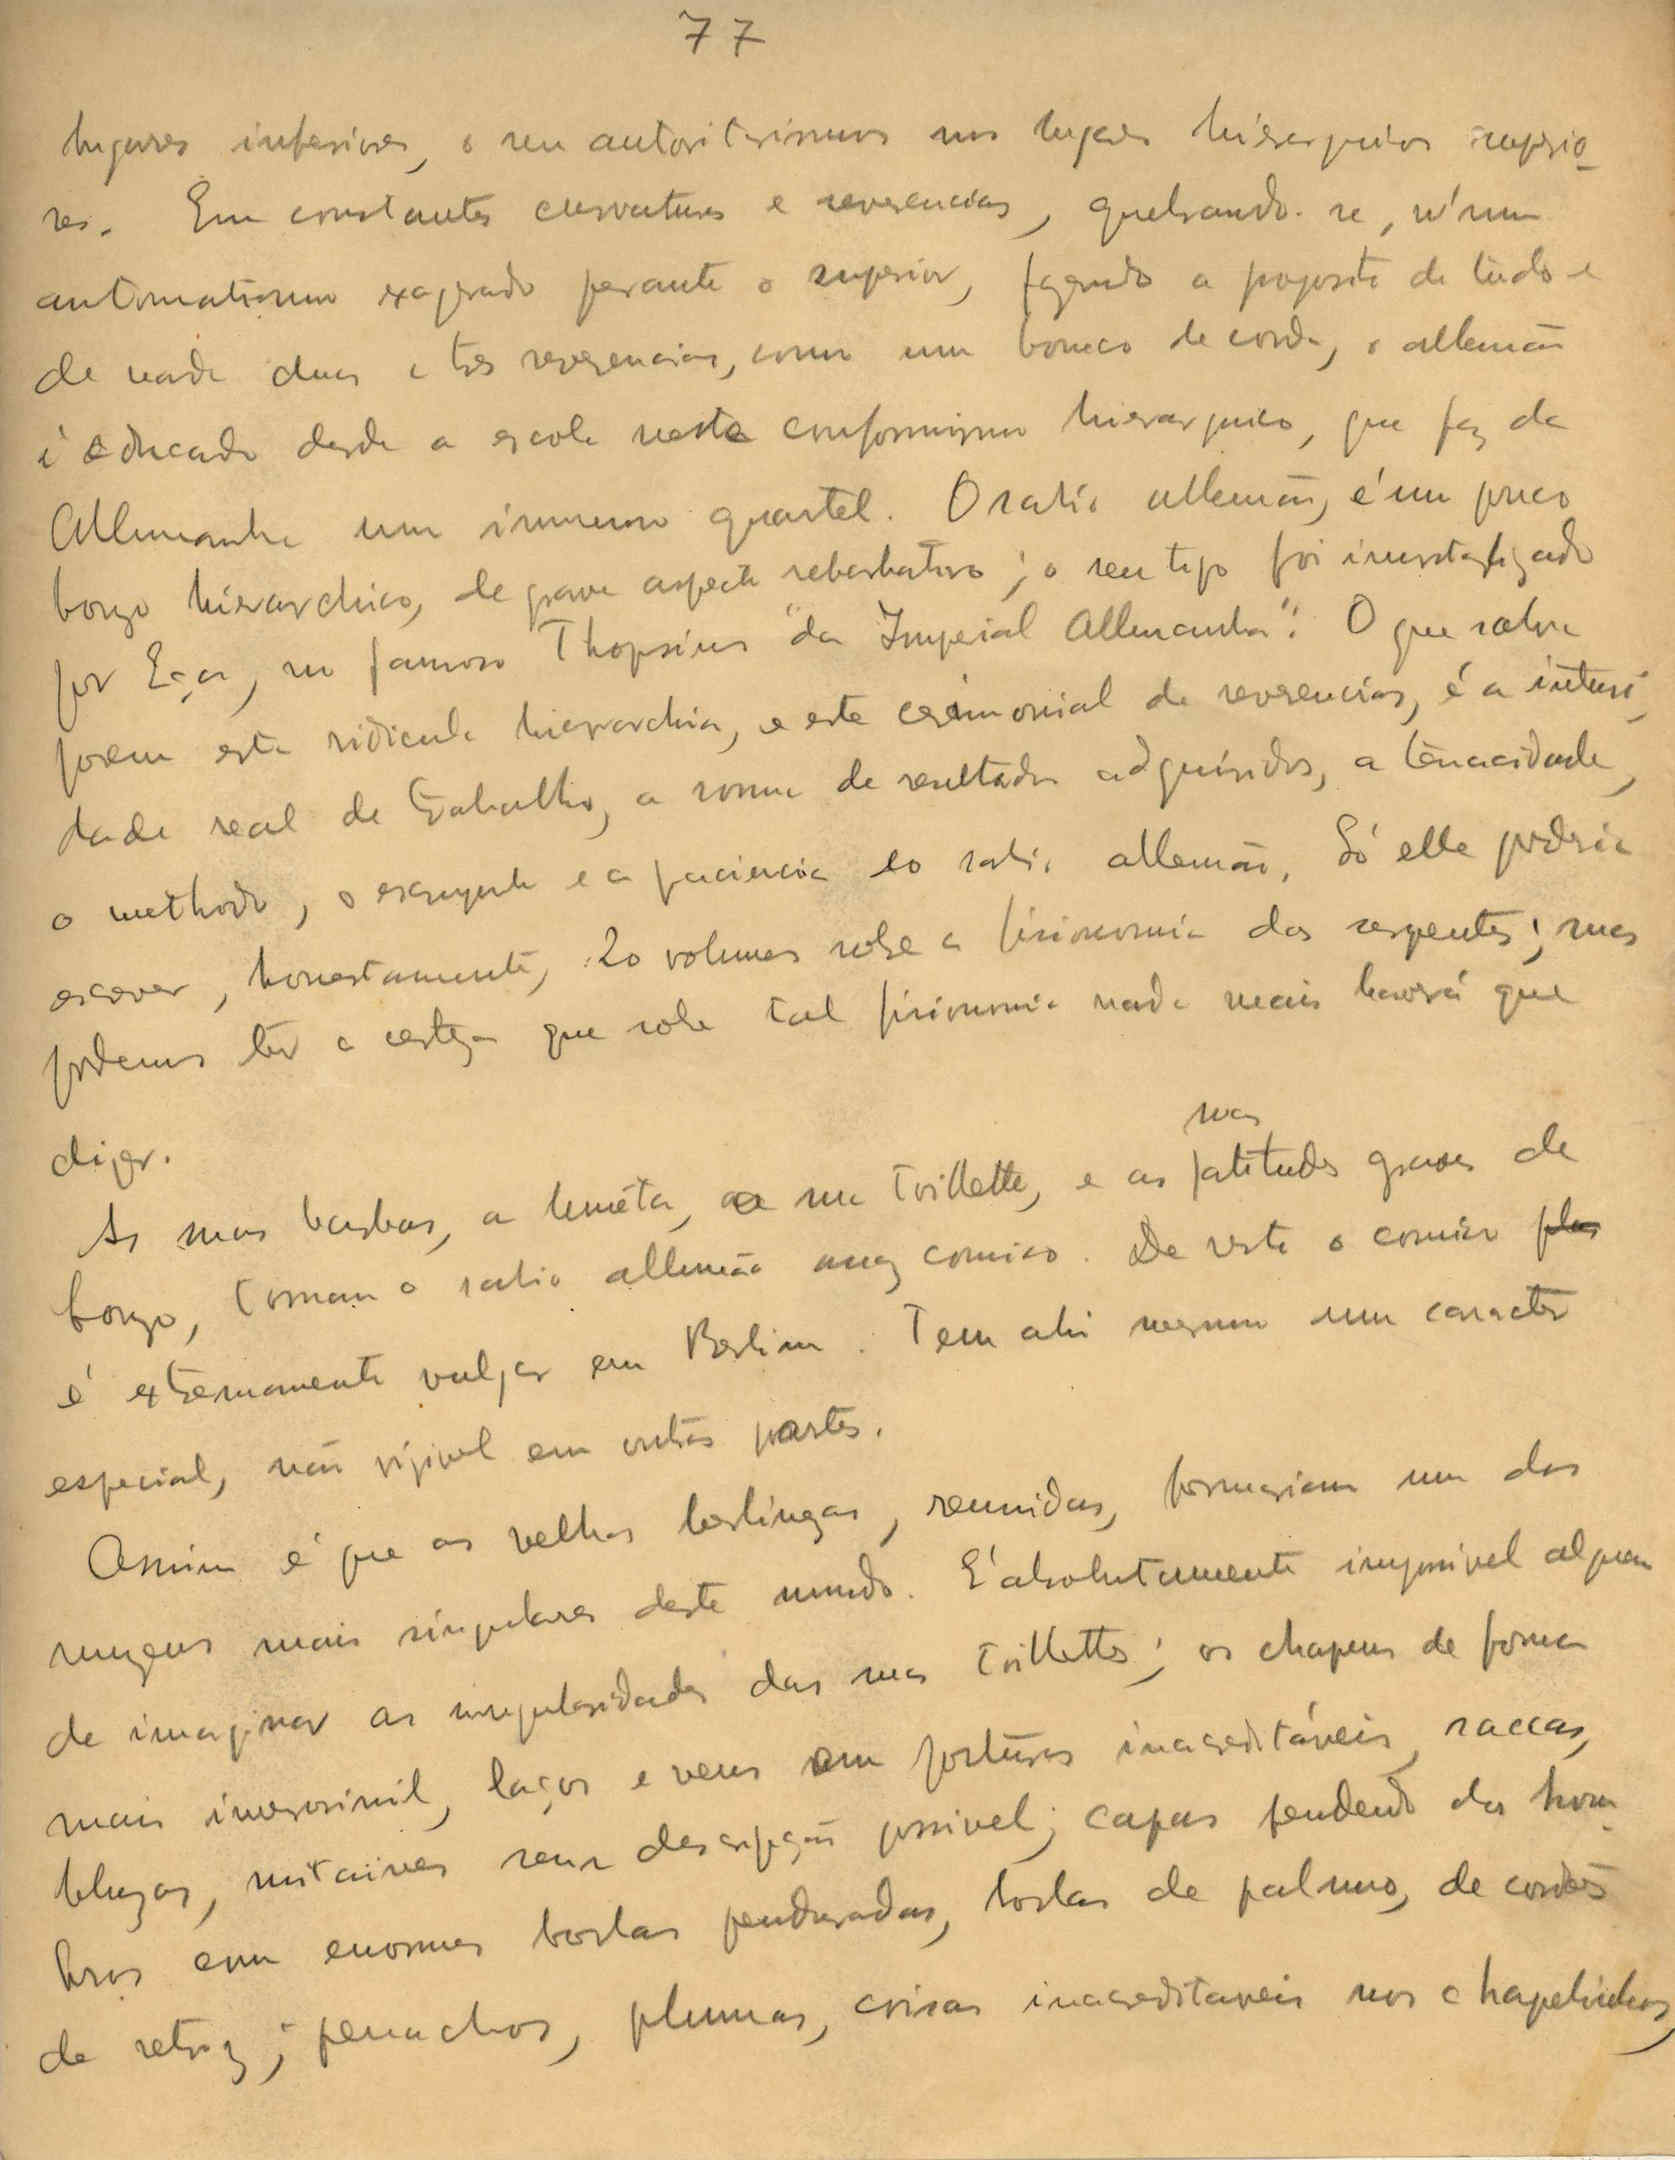 77
lugares inferiores, o seu autoritarismo nos lugares hierarquicos superio-
res. Em constantes curvaturas e reverencias, quebrando-se, n'um
automatismo exagerado perante o superior, fazendo a proposito de tudo e
de nada duas e tres reverencias, como um boneco de corda, o allemão
é educado desde a escola neste conformismo hierarquico, que faz da
Allemanha um immenso quartel. O sabio allemão, é um pouco
bonzo hierarchico, de grave aspecto rebarbativo; o seu typo foi
por Eça, no famoso Thopsius "da Imperial Allemanha". O que salva
porem esta ridicula hierarchia, e este cerimonial de reverencias, é a intensi-
dade real de trabalho, a somma de resultados adquiridos, a tenacidade,
o methodo, o escrupulo e a paciencia do sabio allemão. Só elle poderia
escrever, honestamente, 20 volumes sobre a fisionomia das serpentes; mas
podemos ter a certeza que sobre tal fisionomia nada mais haverá que
dizer.
suas
As suas barbas, a luneta, a sua toillette, e as attitudes graves de
bonzo, tornam o sabio allemão comico. De resto o comico
é extremamente vulgar em Berlim. Tem ahi mesmo um caracter
especial, não visivel em outras partes.
Assim é que as velhas berlinezas, reunidas, formariam um dos
museus mais singulares deste mundo. E' absolutamente impossivel alguem
de imaginar as singularidades das suas toillettes; os chapeus de forma
mais inverosimil, laços e veus em posturas inacreditáveis, saccas,
bluzas, mitaines sem descripção possivel; capas pendendo dos hom-
bros com enormes borlas penduradas, borlas de palmo, de cordões
de retroz; penachos, plumas, coisas inacreditaveis nos chapelinhos,